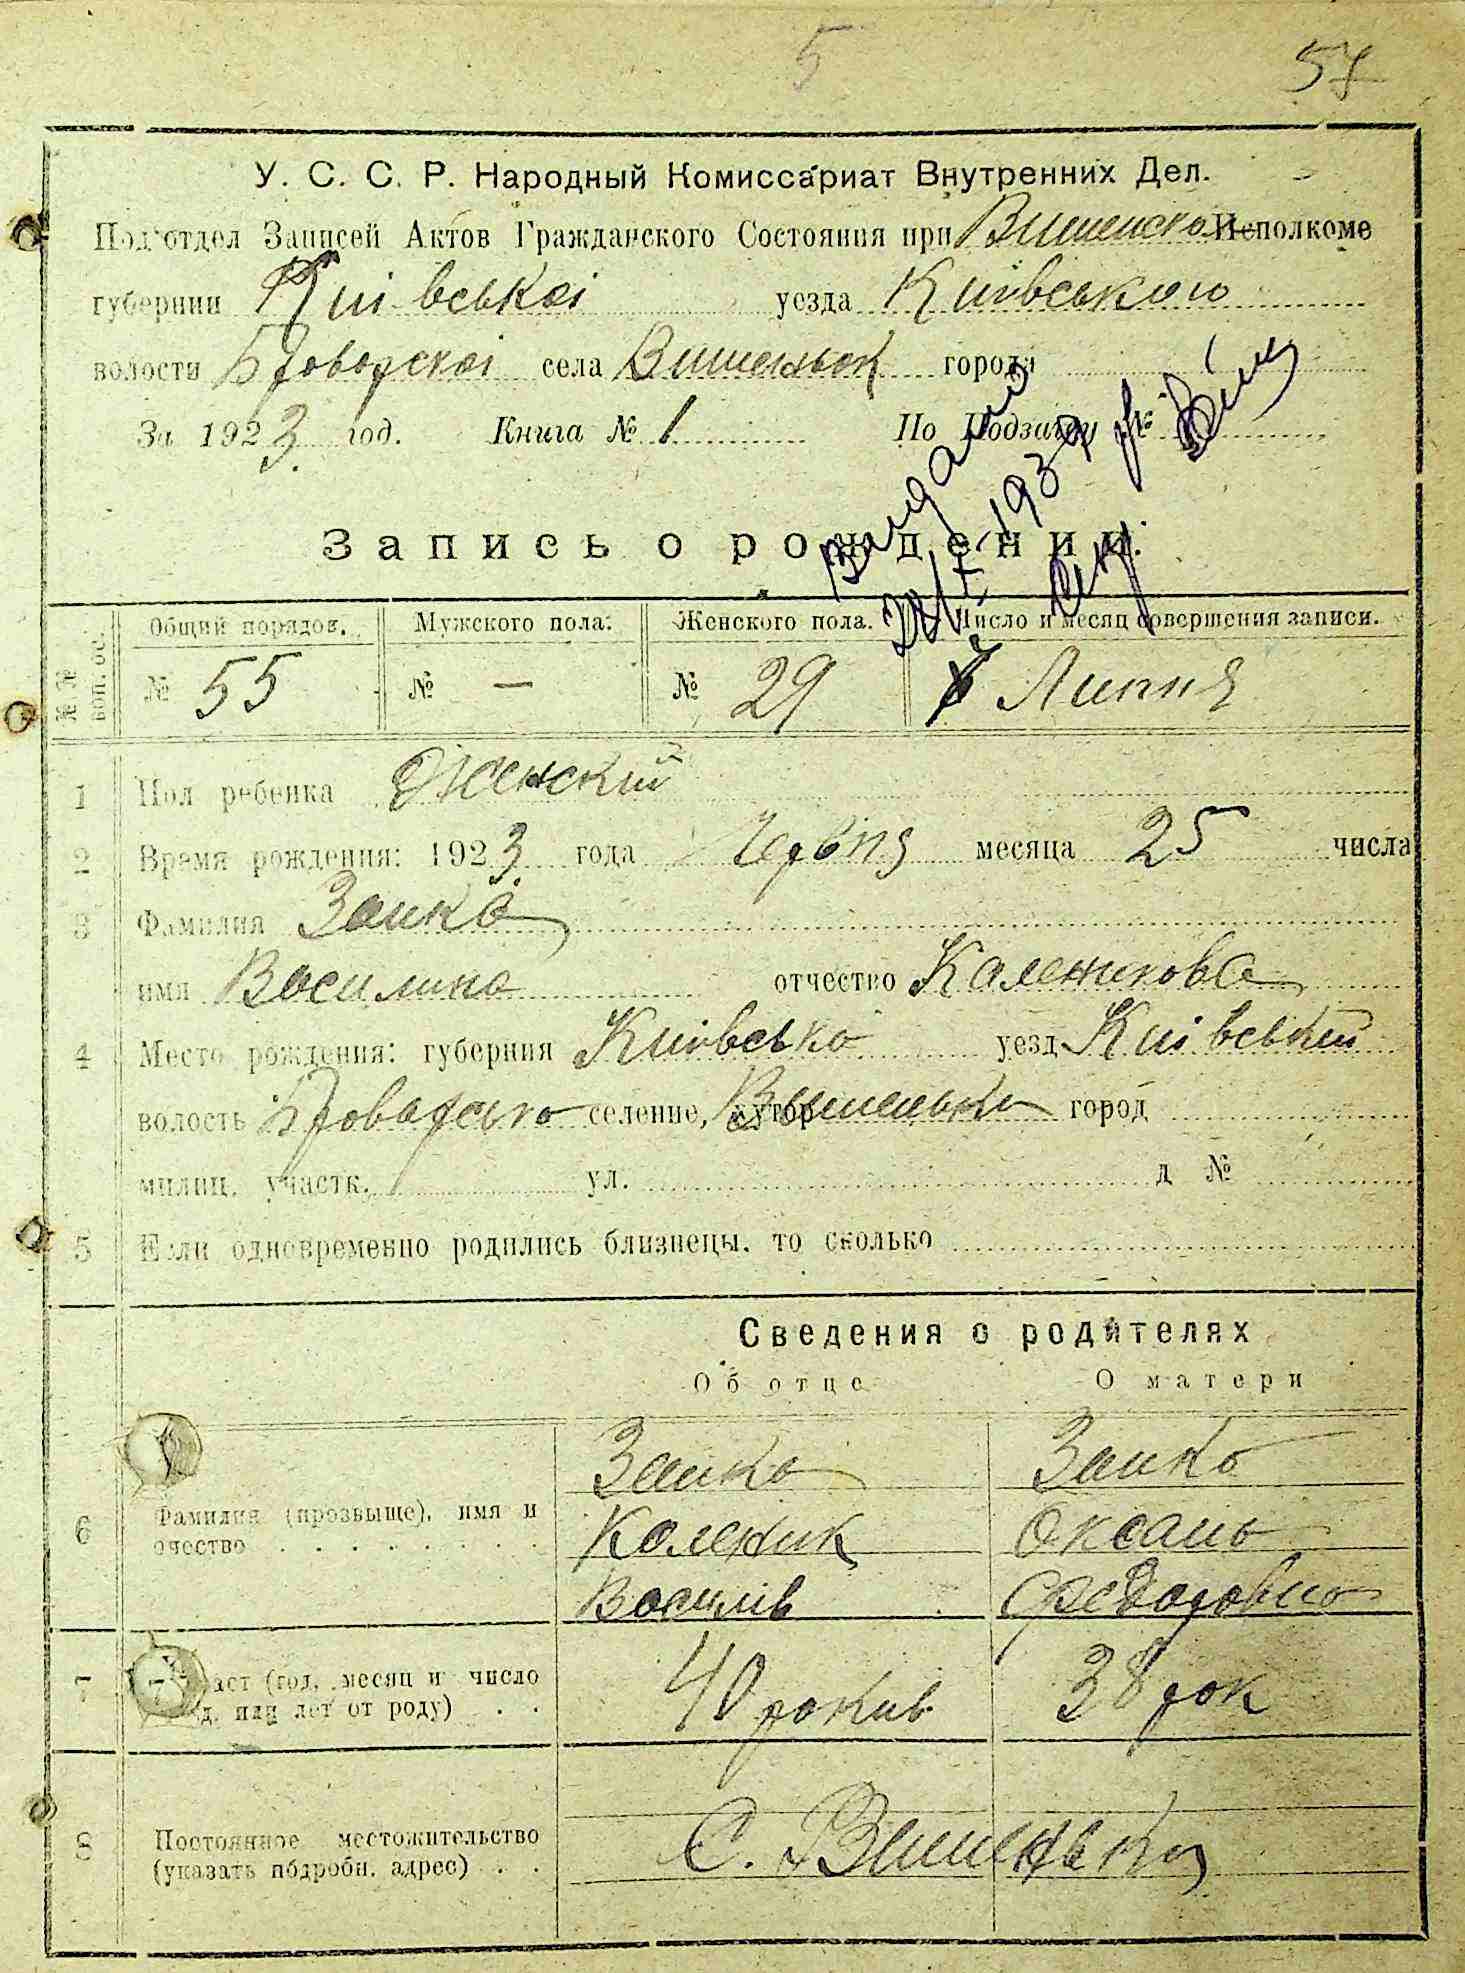 5
57
У. С. С. Р. Народный Комиссариат Внутренних Дел.
Под'отдел Записей Актов Гражданского Состояния при Вишенско Исполкоме
губернии Киівськоі уезда Киівського
волости Броворскоі села Вишеньок города
За 1923 год. Книга № 1 По Подзагсу №
Видано
1939 р.
Секр.
Запись о рождении.
№ № воп. ос. Общий порядов. Мужского пола. Женского пола. Число и месяц совершения записи.
№ 55 № — № 29 7 Липня
1 Пол ребенка Женский
2 Время рождения: 1923 года Червня месяца 25 числа
3 Фамилия Заика
имя Василина отчество Каленикова
4 Место рождения: губерния Киівська уезд Киівський
волость Броварська селение, хутор Вишеньки город
милиц. участк. ул. д №
5 Если одновременно родились близнецы, то сколько
Сведения о родителях
Об отце О матери
Заика Заика
6 Фамилия (прозвыще), имя и Каленик Оксана
очество Василів Федоровна
7 аст (год, месяц и число 40 років 38 рок
д. или лет от роду)
8 Постоянное местожительство С. Вишеньки
(указать подробн. адрес)